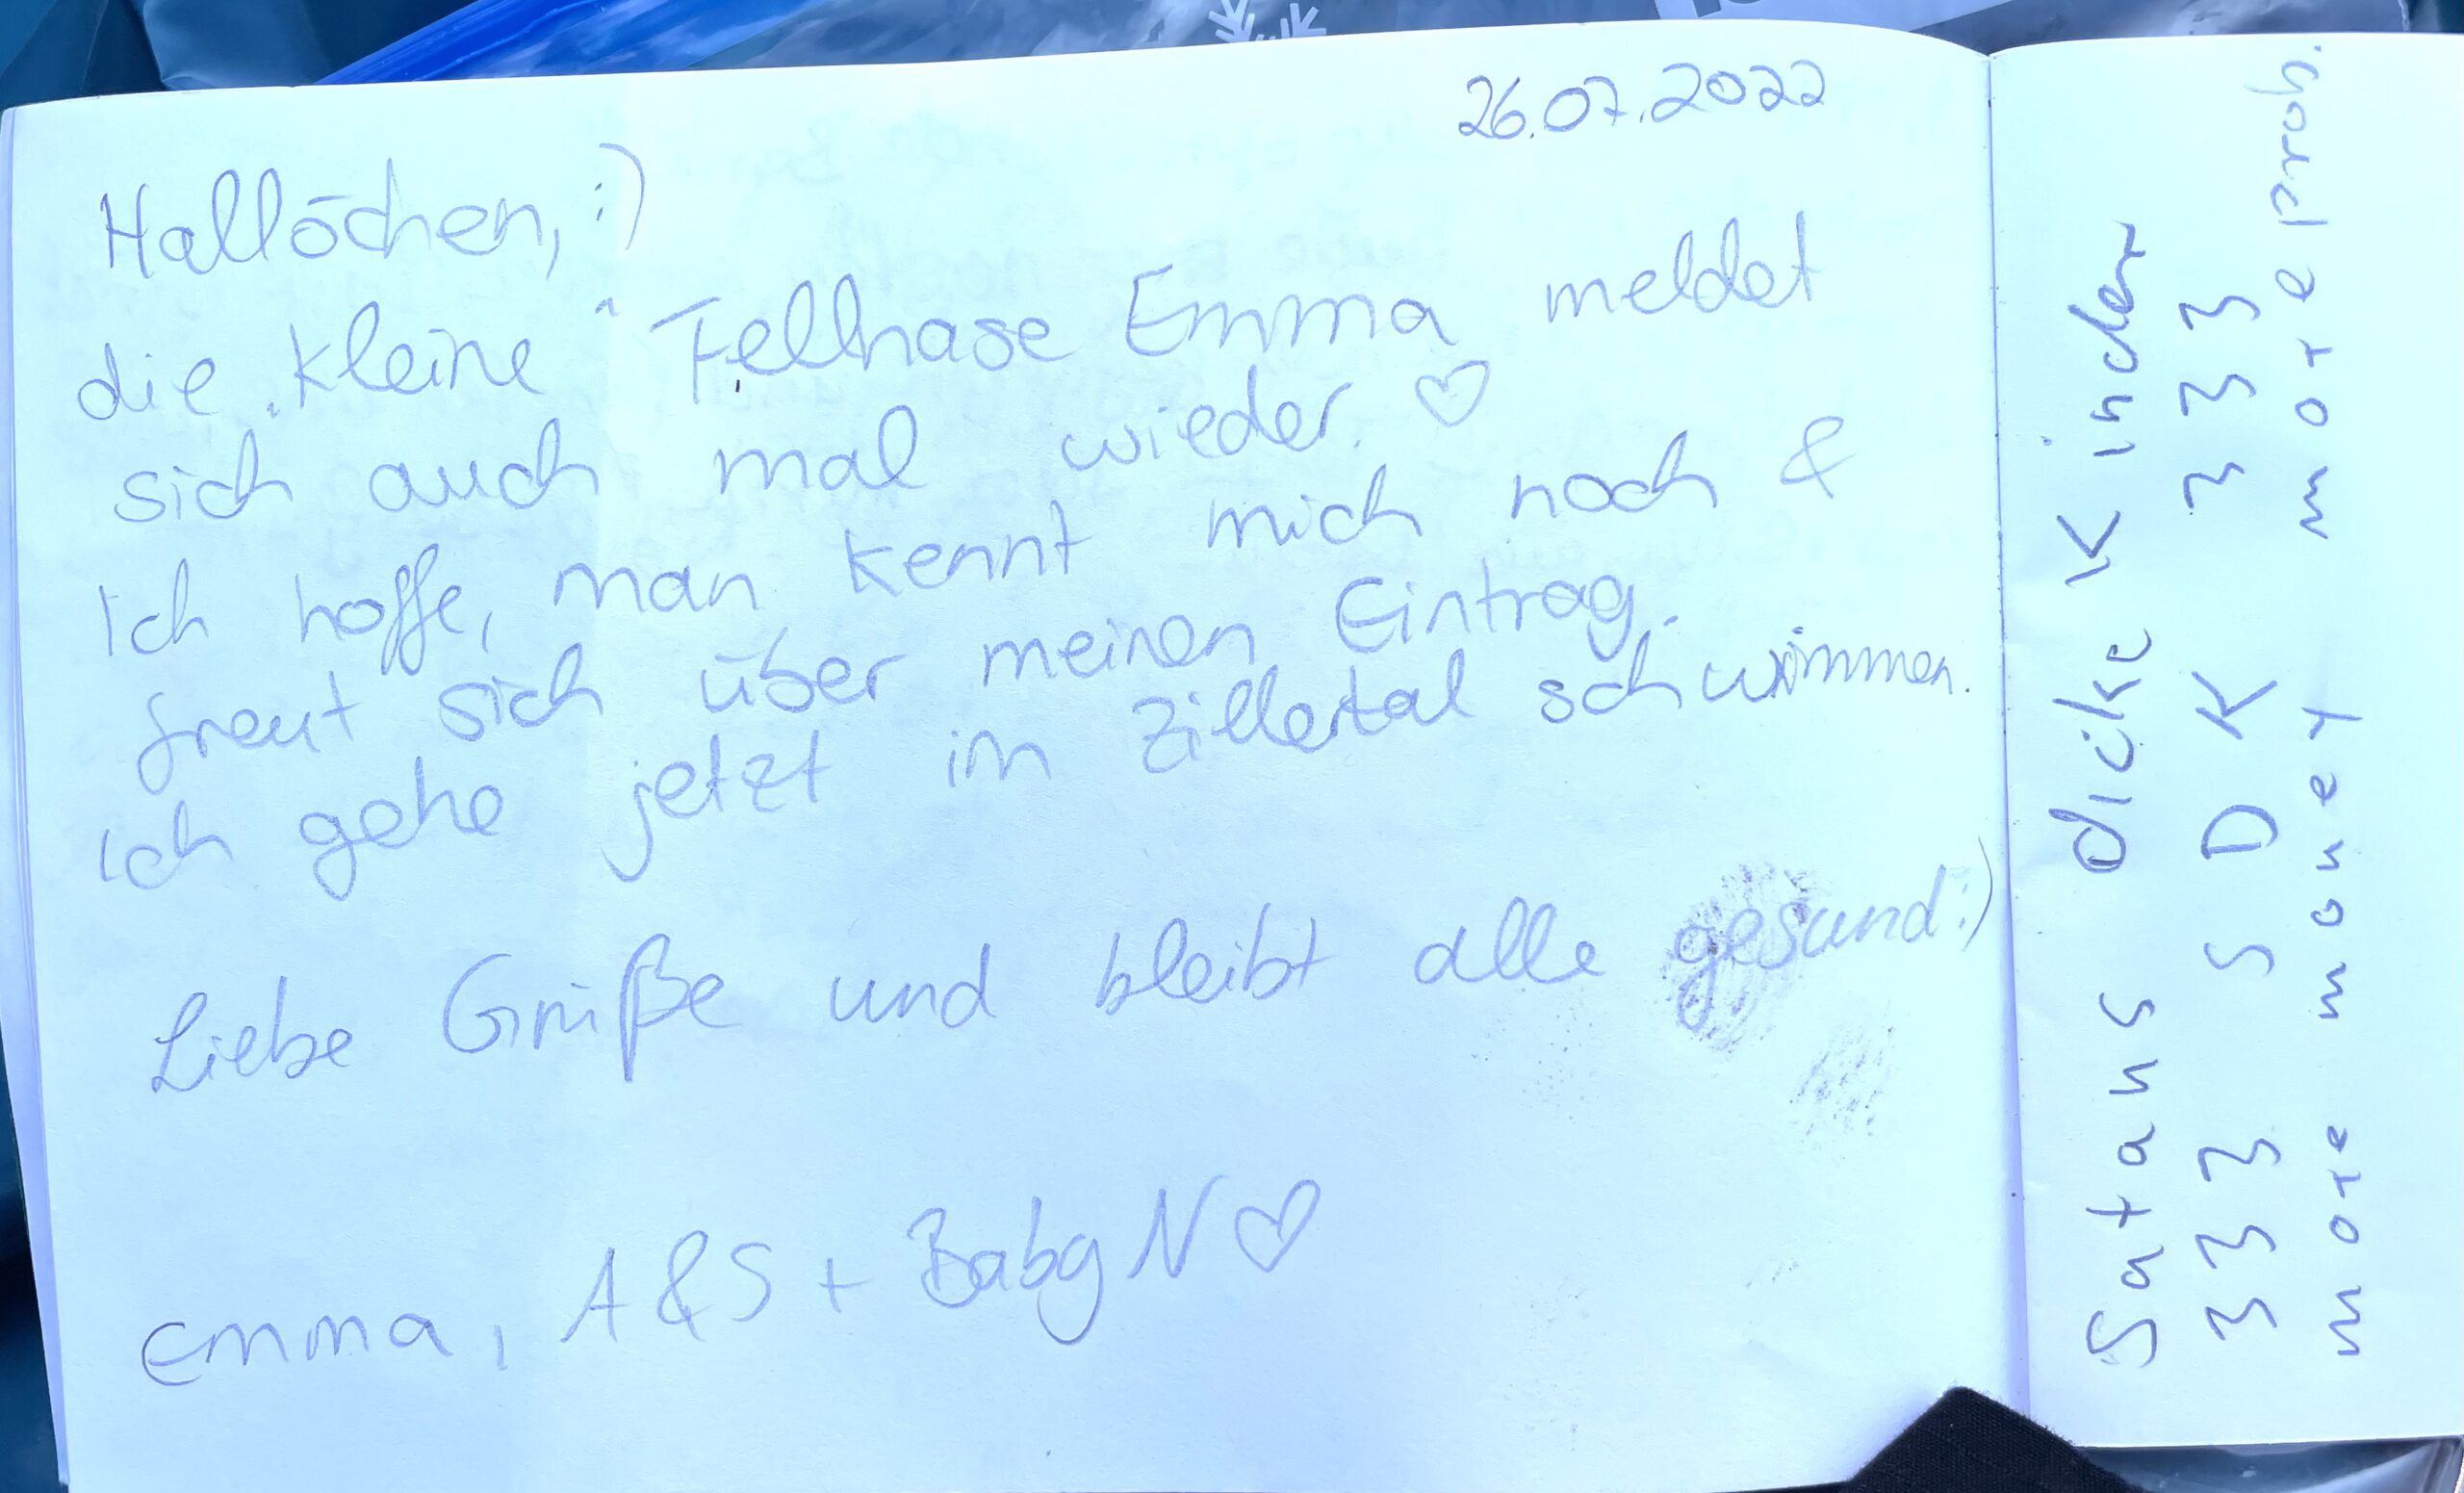 26.07.2022
Hallöchen, :)
die "kleine" Fellnase Emma meldet
sich auch mal wieder. ♡
Ich hoffe, man kennt mich noch &
freut sich über meinen Eintrag.
Ich gehe jetzt im Zillertal schwimmen.
Liebe Grüße und bleibt alle gesund :)
Emma, A & S + Baby N ♡
Satans dicke Kinder
333 SDK 333
more money more prob.